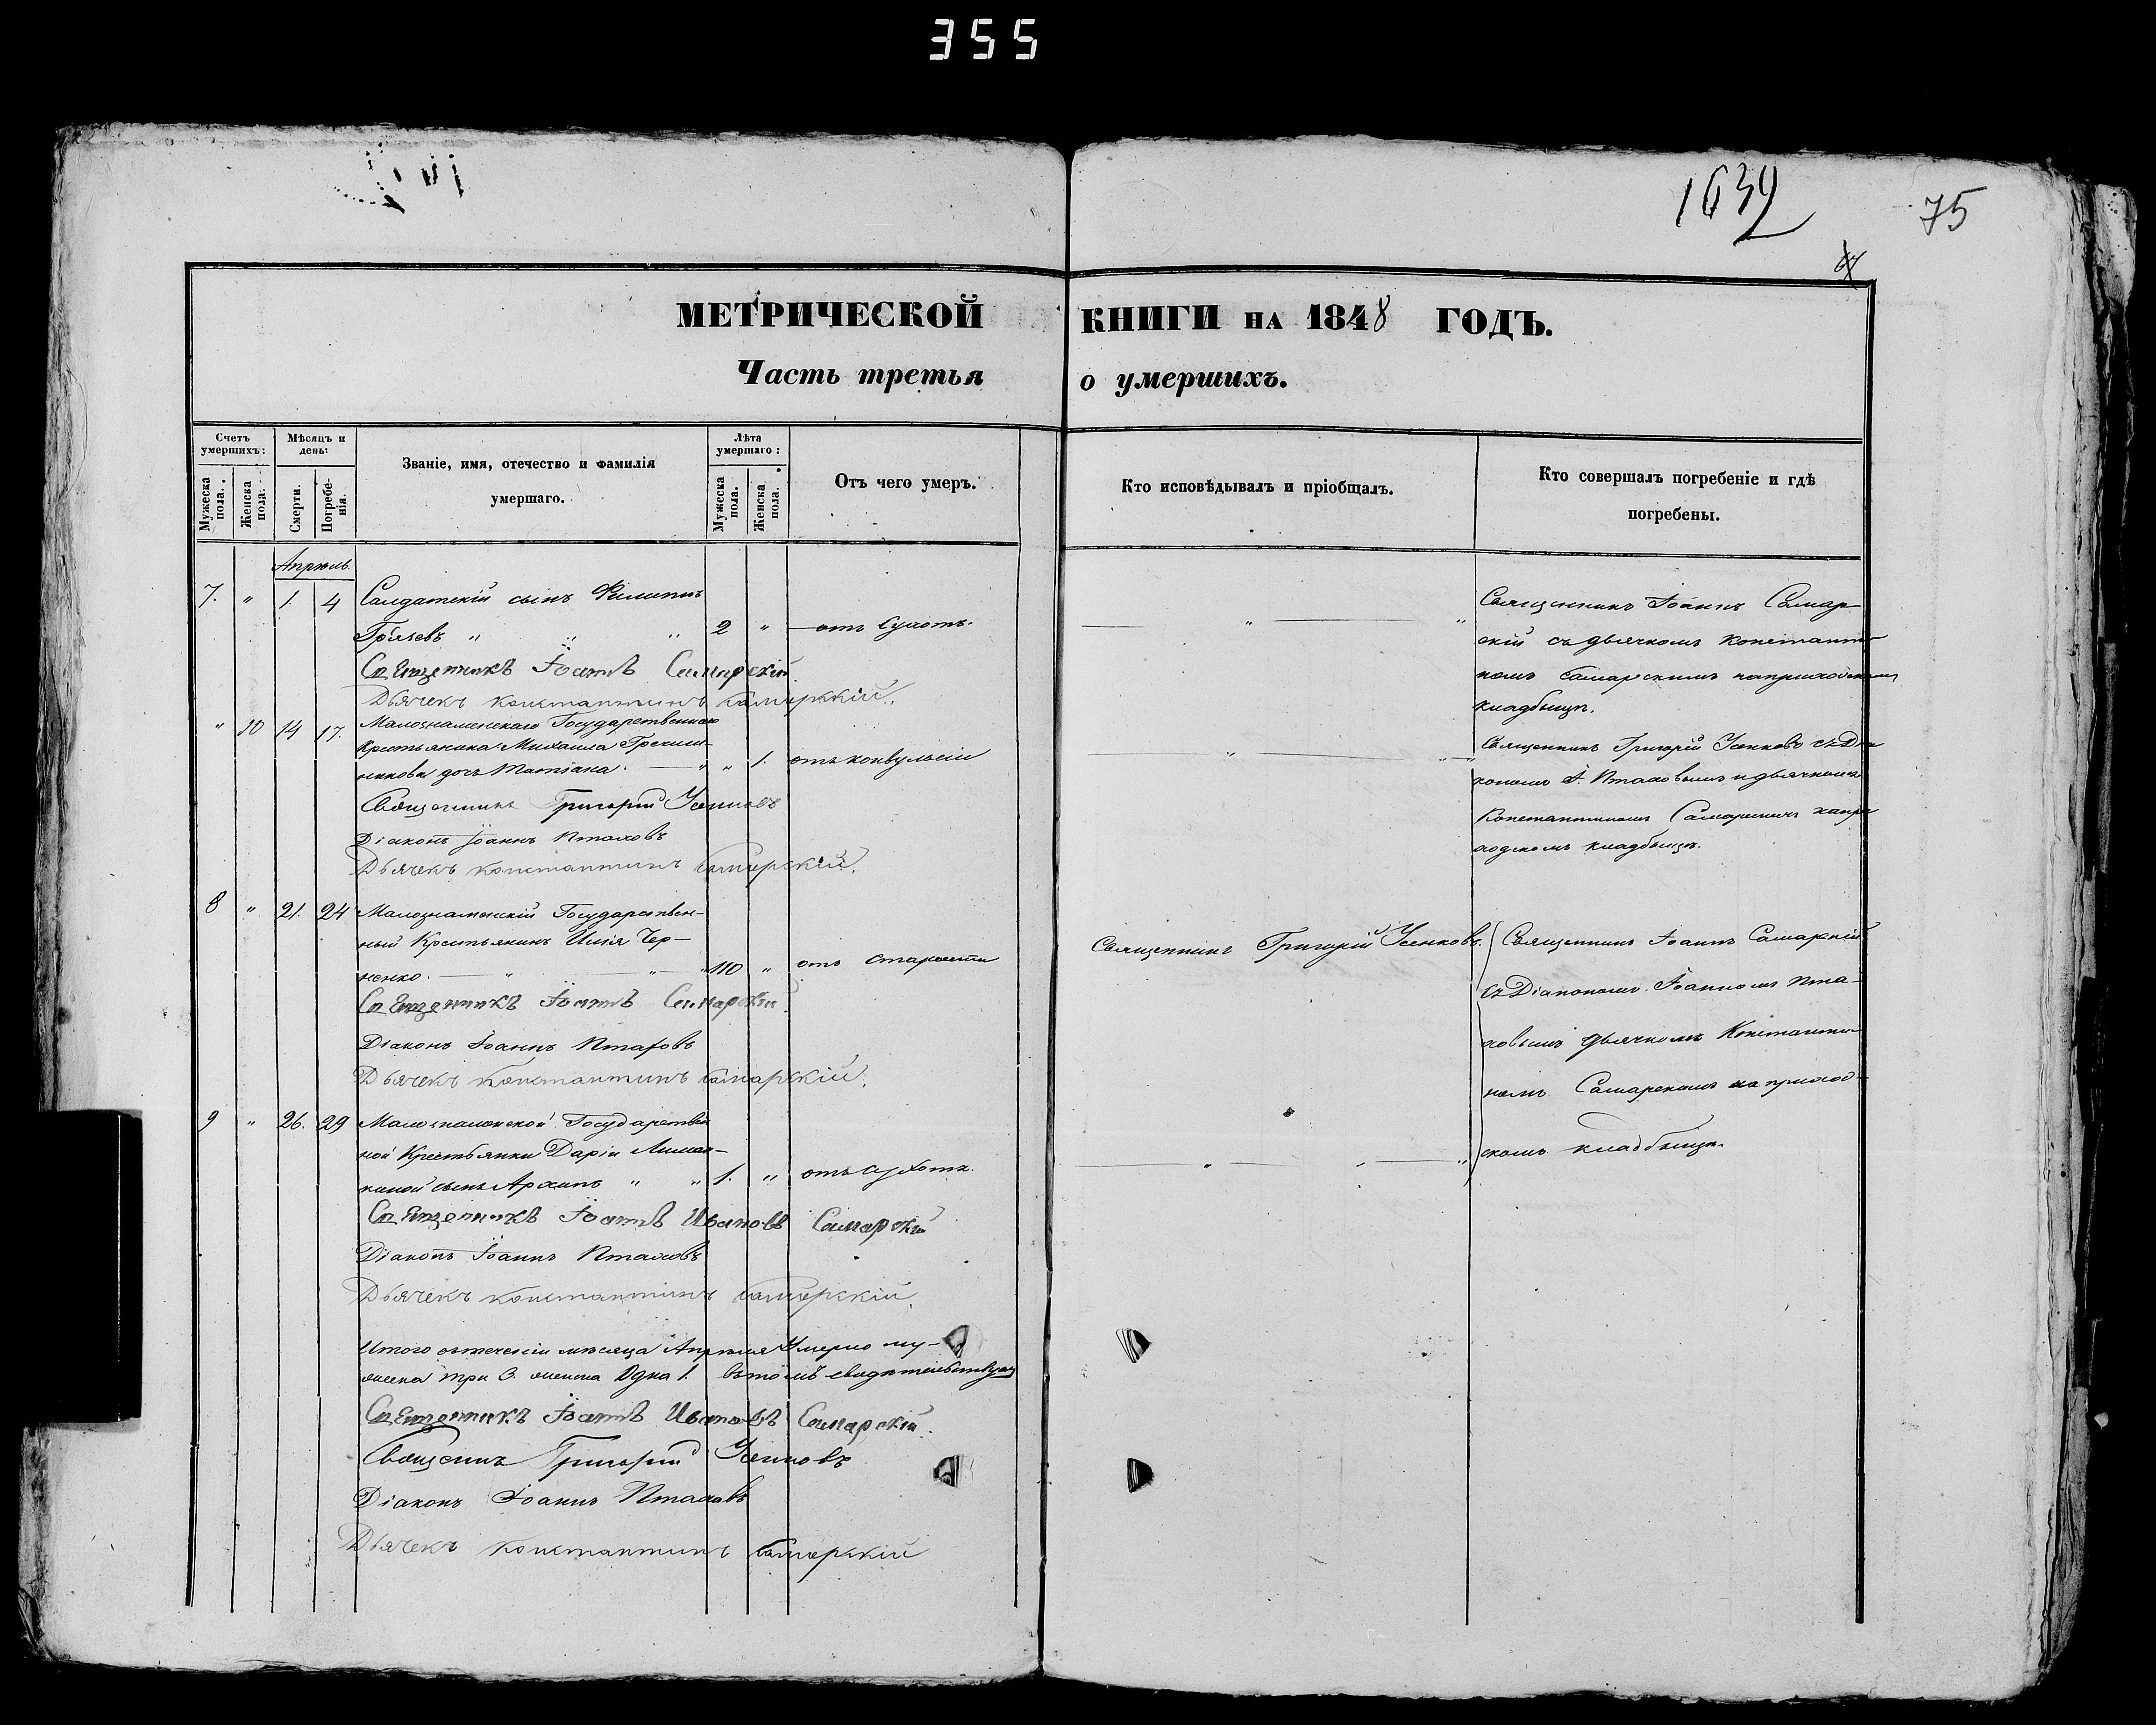 355
1639
75
МЕТРИЧЕСКОЙ КНИГИ НА 1848 ГОДЪ.
Часть третья о умершихъ.
Счетъ умершихъ:
Мужеска пола.
Женска пола.
Мѣсяцъ и день:
Смерти.
Погребенія.
Званіе, имя, отечество и фамилія
умершаго.
Лѣта умершаго:
Мужеска пола.
Женска пола.
Отъ чего умеръ.
Кто исповѣдывалъ и пріобщалъ.
Кто совершалъ погребеніе и гдѣ
погребены.
Апрѣль
7. " 1. 4 Салдатскій сынъ Филиппъ
" " " 2 " отъ Сухотъ.
Священникъ Іоаннъ Самарскій
Дьячекъ Константинъ Самарскій.
Священникъ Іоаннъ Самар
скій съ дьячкомъ Константи
номъ Самарскимъ
кладбищѣ.
" 10 14 17. Малознаменскаго Государственнаго
Крестьянина Михаила
дочь Татіана. " " 1. отъ конвульсіи
Священникъ Григорій Усенковъ
Діаконъ Іоаннъ Птаховъ
Дьячекъ Константинъ Самарскій.
Священникъ Григорій Усенковъ съ Діа
кономъ І. Птаховымъ и дьячкомъ
Константиномъ Самарскимъ
ходскомъ кладбищѣ.
8 " 21. 24 Малознаменскій Государствен-
ный Крестьянинъ Илія Чер-
ненко. " " " 110 " отъ старости
Священникъ Іоаннъ Самарскій
Діаконъ Іоаннъ Птаховъ
Дьячекъ Константинъ Самарскій.
Священникъ Григорій Усенковъ.
Священникъ Іоаннъ Самарскій
съ Діакономъ Іоанномъ Пта-
ховымъ дьячкомъ Константи-
номъ Самарскимъ на приход-
скомъ кладбищѣ.
9 " 26. 29 Малознаменской Государствен
ной Крестьянки Даріи
сынъ Архипъ " " 1. " отъ сухотъ.
Священникъ Іоаннъ Ивановъ Самарскій
Діаконъ Іоаннъ Птаховъ
Дьячекъ Константинъ Самарскій.
Итого въ теченіи мѣсяца Апрѣля Умерло му-
жеска три 3. женска Одна 1. въ томъ свидѣтельствуемъ
Священникъ Іоаннъ Ивановъ Самарскій.
Священникъ Григорій Усенковъ
Діаконъ Іоаннъ Птаховъ
Дьячекъ Константинъ Самарскій